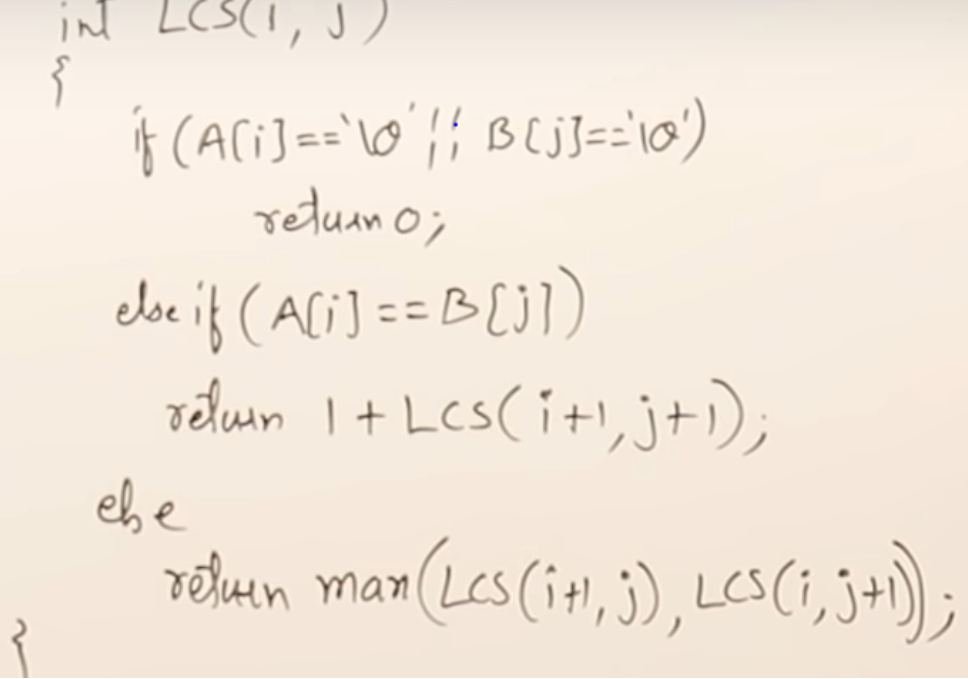 int LCS(i, j)
{
if (A[i]=='\0' || B[j]=='\0')
return 0;
else if (A[i]==B[j])
return 1+LCS(i+1,j+1);
else
return max(LCS(i+1,j), LCS(i,j+1));
{